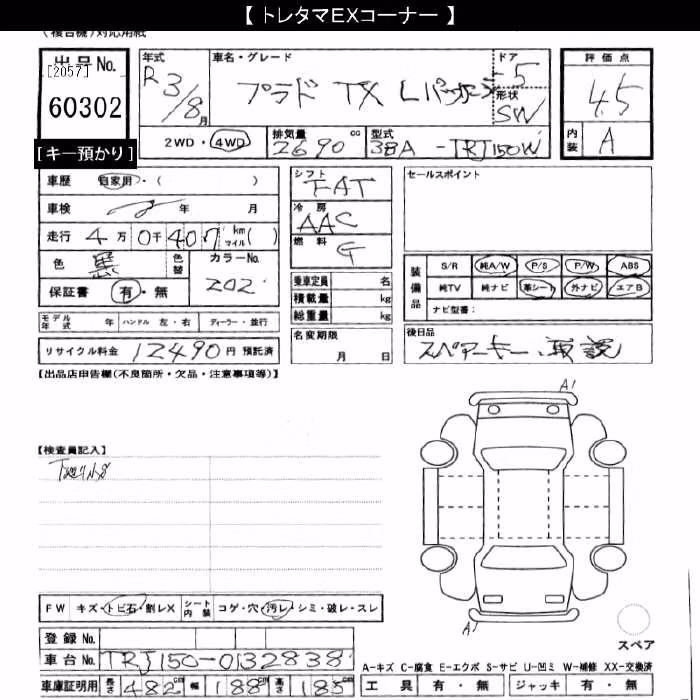 【 トレタマEXコーナー 】
(複合機)対応用紙
出品No. [2057] 60302
[キー預かり]
年式 R3/8月
車名・グレード プラド TX Lパッケージ
ドア 5
形状 SW
評価点 4.5
内装 A
2WD・4WD
排気量 2690 cc
型式 3BA-TRJ150W
車歴 自家用・( )
車検 年 月
走行 4万0千407 km マイル( )
色 黒 色替 カラーNo. 202
保証書 有・無
シフト FAT
冷房 AAC
燃料 G
乗車定員 名
積載量 kg
総重量 kg
セールスポイント
装備品 S/R 純A/W P/S P/W ABS
純TV 純ナビ 革シート 外ナビ エアB
ナビ型番:
モデル年式 年 ハンドル 左・右 ディーラー・並行
リサイクル料金 12490 円 預託済
名変期限 月 日
後日品 スペアーキー、取説
【出品店申告欄(不良箇所・欠品・注意事項等)】
A1
【検査員記入】
FW キズ・トビ石・割レX シート内装 コゲ・穴・汚レ・シミ・破レ・スレ
A1
スペア
登録No.
車台No. TRJ150-0132838
A-キズ C-腐食 E-エクボ S-サビ U-凹ミ W-補修 XX-交換済
車庫証明用 長さ 482cm 幅 188cm 高さ 185cm
工具 有・無 ジャッキ 有・無